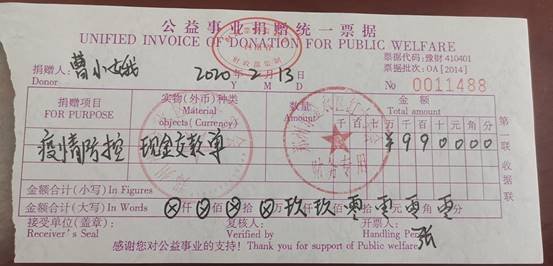 公益事业捐赠统一票据
UNIFIED INVOICE OF DONATION FOR PUBLIC WELFARE
捐赠人: 曹小娥 2020年2月13日 票据代码: 豫财 410401
Donor Y M D 票据批次: OA [2014]
No 0011488
捐赠项目 实物(外币)种类 数量 金额
FOR PURPOSE Material objects (Currency) Amount Total amount
千百十万千百十元角分
疫情防控 现金交款单 ¥990000
金额合计(小写) In Figures
金额合计(大写) In Words ⊗仟⊗佰⊗拾⊗万玖玖零佰零拾零元零角分
接受单位(盖章): 复核人: 开票人: 张
Receiver's Seal Verified by Handling Per
感谢您对公益事业的支持! Thank you for support of Public welfare
第一联 收据联
财务专用
财政部监制